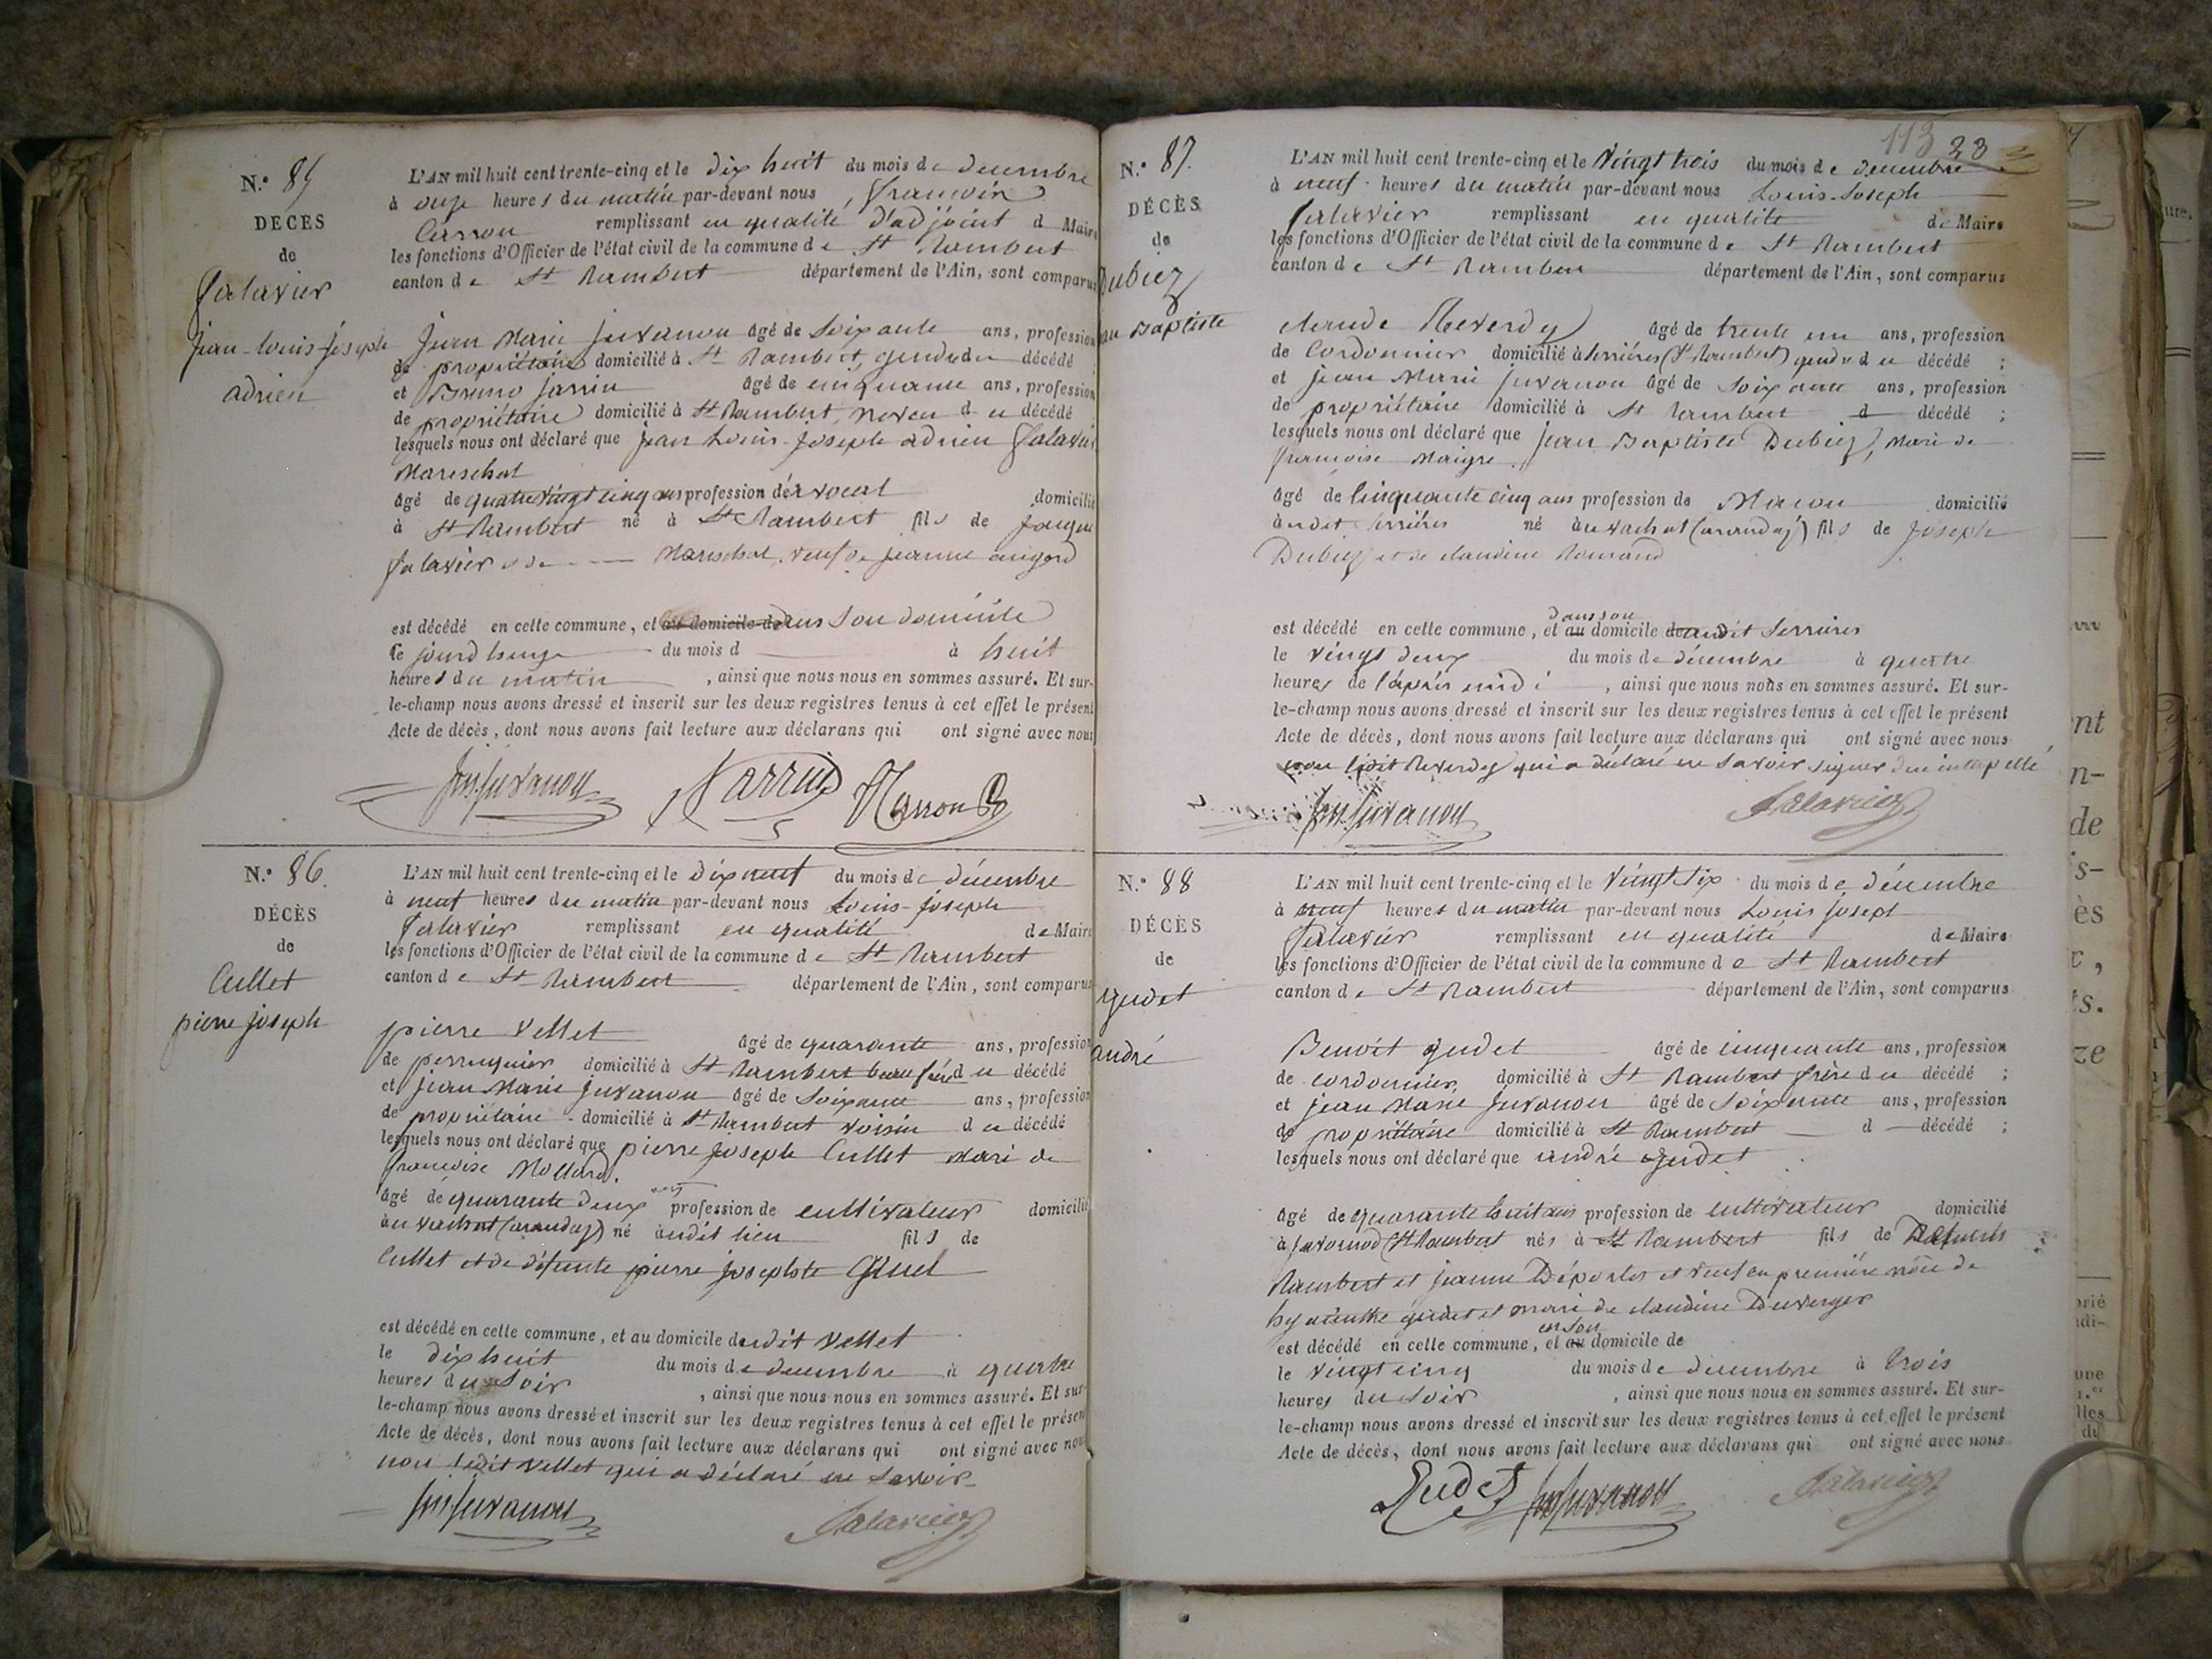 N.° 85
DÉCÈS
de
falavier
jean-louis-joseph
adrien
L'AN mil huit cent trente-cinq et le dix huit du mois de decembre
à onze heures du matin par-devant nous, françois
Carron remplissant en qualité d'adjoint d Maire
les fonctions d'Officier de l'état civil de la commune de St Rambert
canton de St Rambert département de l'Ain, sont comparus
jean Marie juvanon âgé de soixante ans, profession
de propriétaire domicilié à St Rambert, gendre du décédé
et Bruno jarrin âgé de cinquante ans, profession
de propriétaire domicilié à St Rambert, neveu du décédé
lesquels nous ont déclaré que jean Louis-joseph adrien falavier
Mareschal
âgé de quatre vingt cinq ans profession d'avocat domicilié
à St Rambert né à St Rambert fils de jaque
falavier et de Mareschal, veuf de jeanne
est décédé en cette commune, et au domicile de dans son domicile
le jourd huy du mois d à huit
heures du matin, ainsi que nous nous en sommes assuré. Et sur-
le-champ nous avons dressé et inscrit sur les deux registres tenus à cet effet le présent
Acte de décès, dont nous avons fait lecture aux déclarans qui ont signé avec nous
jm juvanon Jarrin Carron
N.° 86
DÉCÈS
de
Cullet
pierre joseph
L'AN mil huit cent trente-cinq et le dix neuf du mois de décembre
à neuf heures du matin par-devant nous Louis-joseph
falavier remplissant en qualité de Maire
les fonctions d'Officier de l'état civil de la commune de St Rambert
canton de St Rambert département de l'Ain, sont comparus
pierre Vellet âgé de quarante ans, profession
de perruquier domicilié à St Rambert beau frère du décédé
et jean Marie juvanon âgé de soixante ans, profession
de propriétaire domicilié à St Rambert voisin du décédé
lesquels nous ont déclaré que pierre joseph Cullet mari de
françoise Mollard.
âgé de quarante deux ans profession de cultivateur domicilié
au vachat (arandaz) né audit lieu fils de
Cullet et de défunte pierre josephte
est décédé en cette commune, et au domicile dudit Vellet
le dix huit du mois de decembre à quatre
heures du soir, ainsi que nous nous en sommes assuré. Et sur-
le-champ nous avons dressé et inscrit sur les deux registres tenus à cet effet le présent
Acte de décès, dont nous avons fait lecture aux déclarans qui ont signé avec nous
non ledit Vellet qui a déclaré ne savoir
jm juvanon falavier
113 23
N.° 87.
DÉCÈS
de
Dubiez
Baptiste
L'AN mil huit cent trente-cinq et le vingt trois du mois de decembre
à neuf heures du matin par-devant nous Louis-Joseph
falavier remplissant en qualité de Maire
les fonctions d'Officier de l'état civil de la commune de St Rambert
canton de St Rambert département de l'Ain, sont comparus
claude Reverdy âgé de trente un ans, profession
de cordonnier domicilié à serrières (St Rambert) gendre du décédé ;
et jean Marie juvanon âgé de soixante ans, profession
de propriétaire domicilié à St Rambert d décédé ;
lesquels nous ont déclaré que jean Baptiste Dubiez, mari de
françoise Maigre.
âgé de cinquante cinq ans profession de Macon domicilié
audit serrières né au vachat (arandaz) fils de joseph
Dubiez et de claudine Romand
dans son
est décédé en cette commune, et au domicile de audit serrières
le vingt deux du mois de décembre à quatre
heures de l'après midi, ainsi que nous nous en sommes assuré. Et sur-
le-champ nous avons dressé et inscrit sur les deux registres tenus à cet effet le présent
Acte de décès, dont nous avons fait lecture aux déclarans qui ont signé avec nous
non ledit Reverdy qui a déclaré ne savoir signer de ce interpellé
jm juvanon falavier
N.° 88
DÉCÈS
de
gudet
andré
L'AN mil huit cent trente-cinq et le vingt six du mois de décembre
à neuf heures du matin par-devant nous Louis joseph
falavier remplissant en qualité de Maire
les fonctions d'Officier de l'état civil de la commune de St Rambert
canton de St Rambert département de l'Ain, sont comparus
Benoît gudet âgé de cinquante ans, profession
de cordonnier domicilié à St Rambert frère du décédé ;
et jean Marie juvanon âgé de soixante ans, profession
de propriétaire domicilié à St Rambert d décédé ;
lesquels nous ont déclaré que andré gudet
âgé de quarante huit ans profession de cultivateur domicilié
à javornod (St Rambert né à St Rambert fils de Défunts
Rambert et jeanne Déportes et veuf en première nôce de
hyacinthe gudet et mari de claudine Duverger
en son
est décédé en cette commune, et au domicile de
le vingt cinq du mois de decembre à trois
heures du soir, ainsi que nous nous en sommes assuré. Et sur-
le-champ nous avons dressé et inscrit sur les deux registres tenus à cet effet le présent
Acte de décès, dont nous avons fait lecture aux déclarans qui ont signé avec nous
Gudet jm juvanon falavier